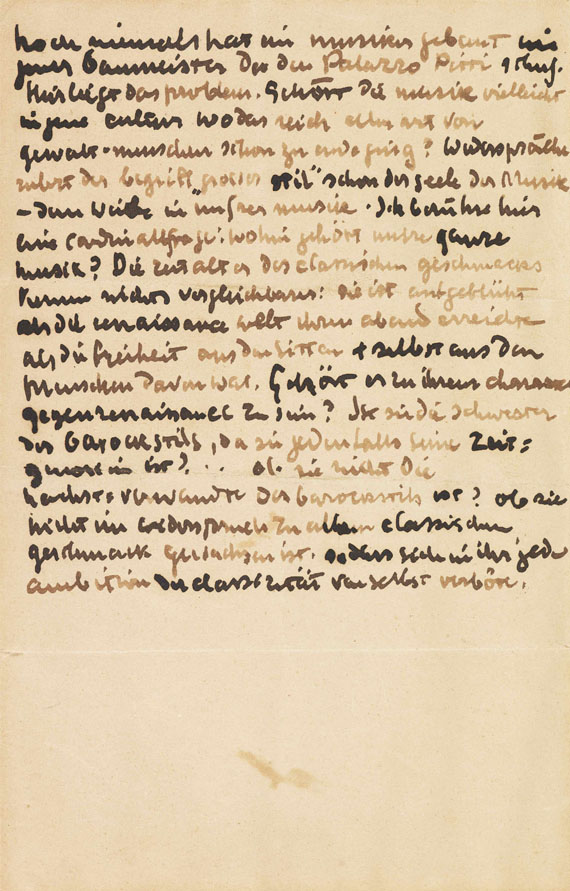 noch niemals hat ein musiker gebaut wie
jener baumeister der den Palazzo Pitti schuf.
Hier liegt das problem. Gehört die musik vielleicht
in jene cultur wo das reich aller art von
gewalt-menschen schon zu ende ging? Widerspräche
zuletzt der begriff grosser stil" schon der seele der Musik
– dem Weibe in "unsrer musik. Ich berühre hier
eine cardinalfrage: wohin gehört unsre ganze
musik? Die zeitalter des classischen geschmacks
kennen nichts vergleichbares: sie ist aufgeblüht
als die renaissance welt ihren abend erreichte
als die freiheit aus den sitten + selbst aus den
menschen davon war. Gehört es zu ihrem charakter
gegenrenaissance zu sein? Ist sie die schwester
des barockstils, da sie jedenfalls seine zeit=
genossin ist? . . . ob sie nicht die
nächste verwandte des barockstils ist? ob sie
nicht im widerspruch zu allem classischen
geschmack gewachsen ist. sodass sich in ihr jede
ambition der classizität von selbst verböte.